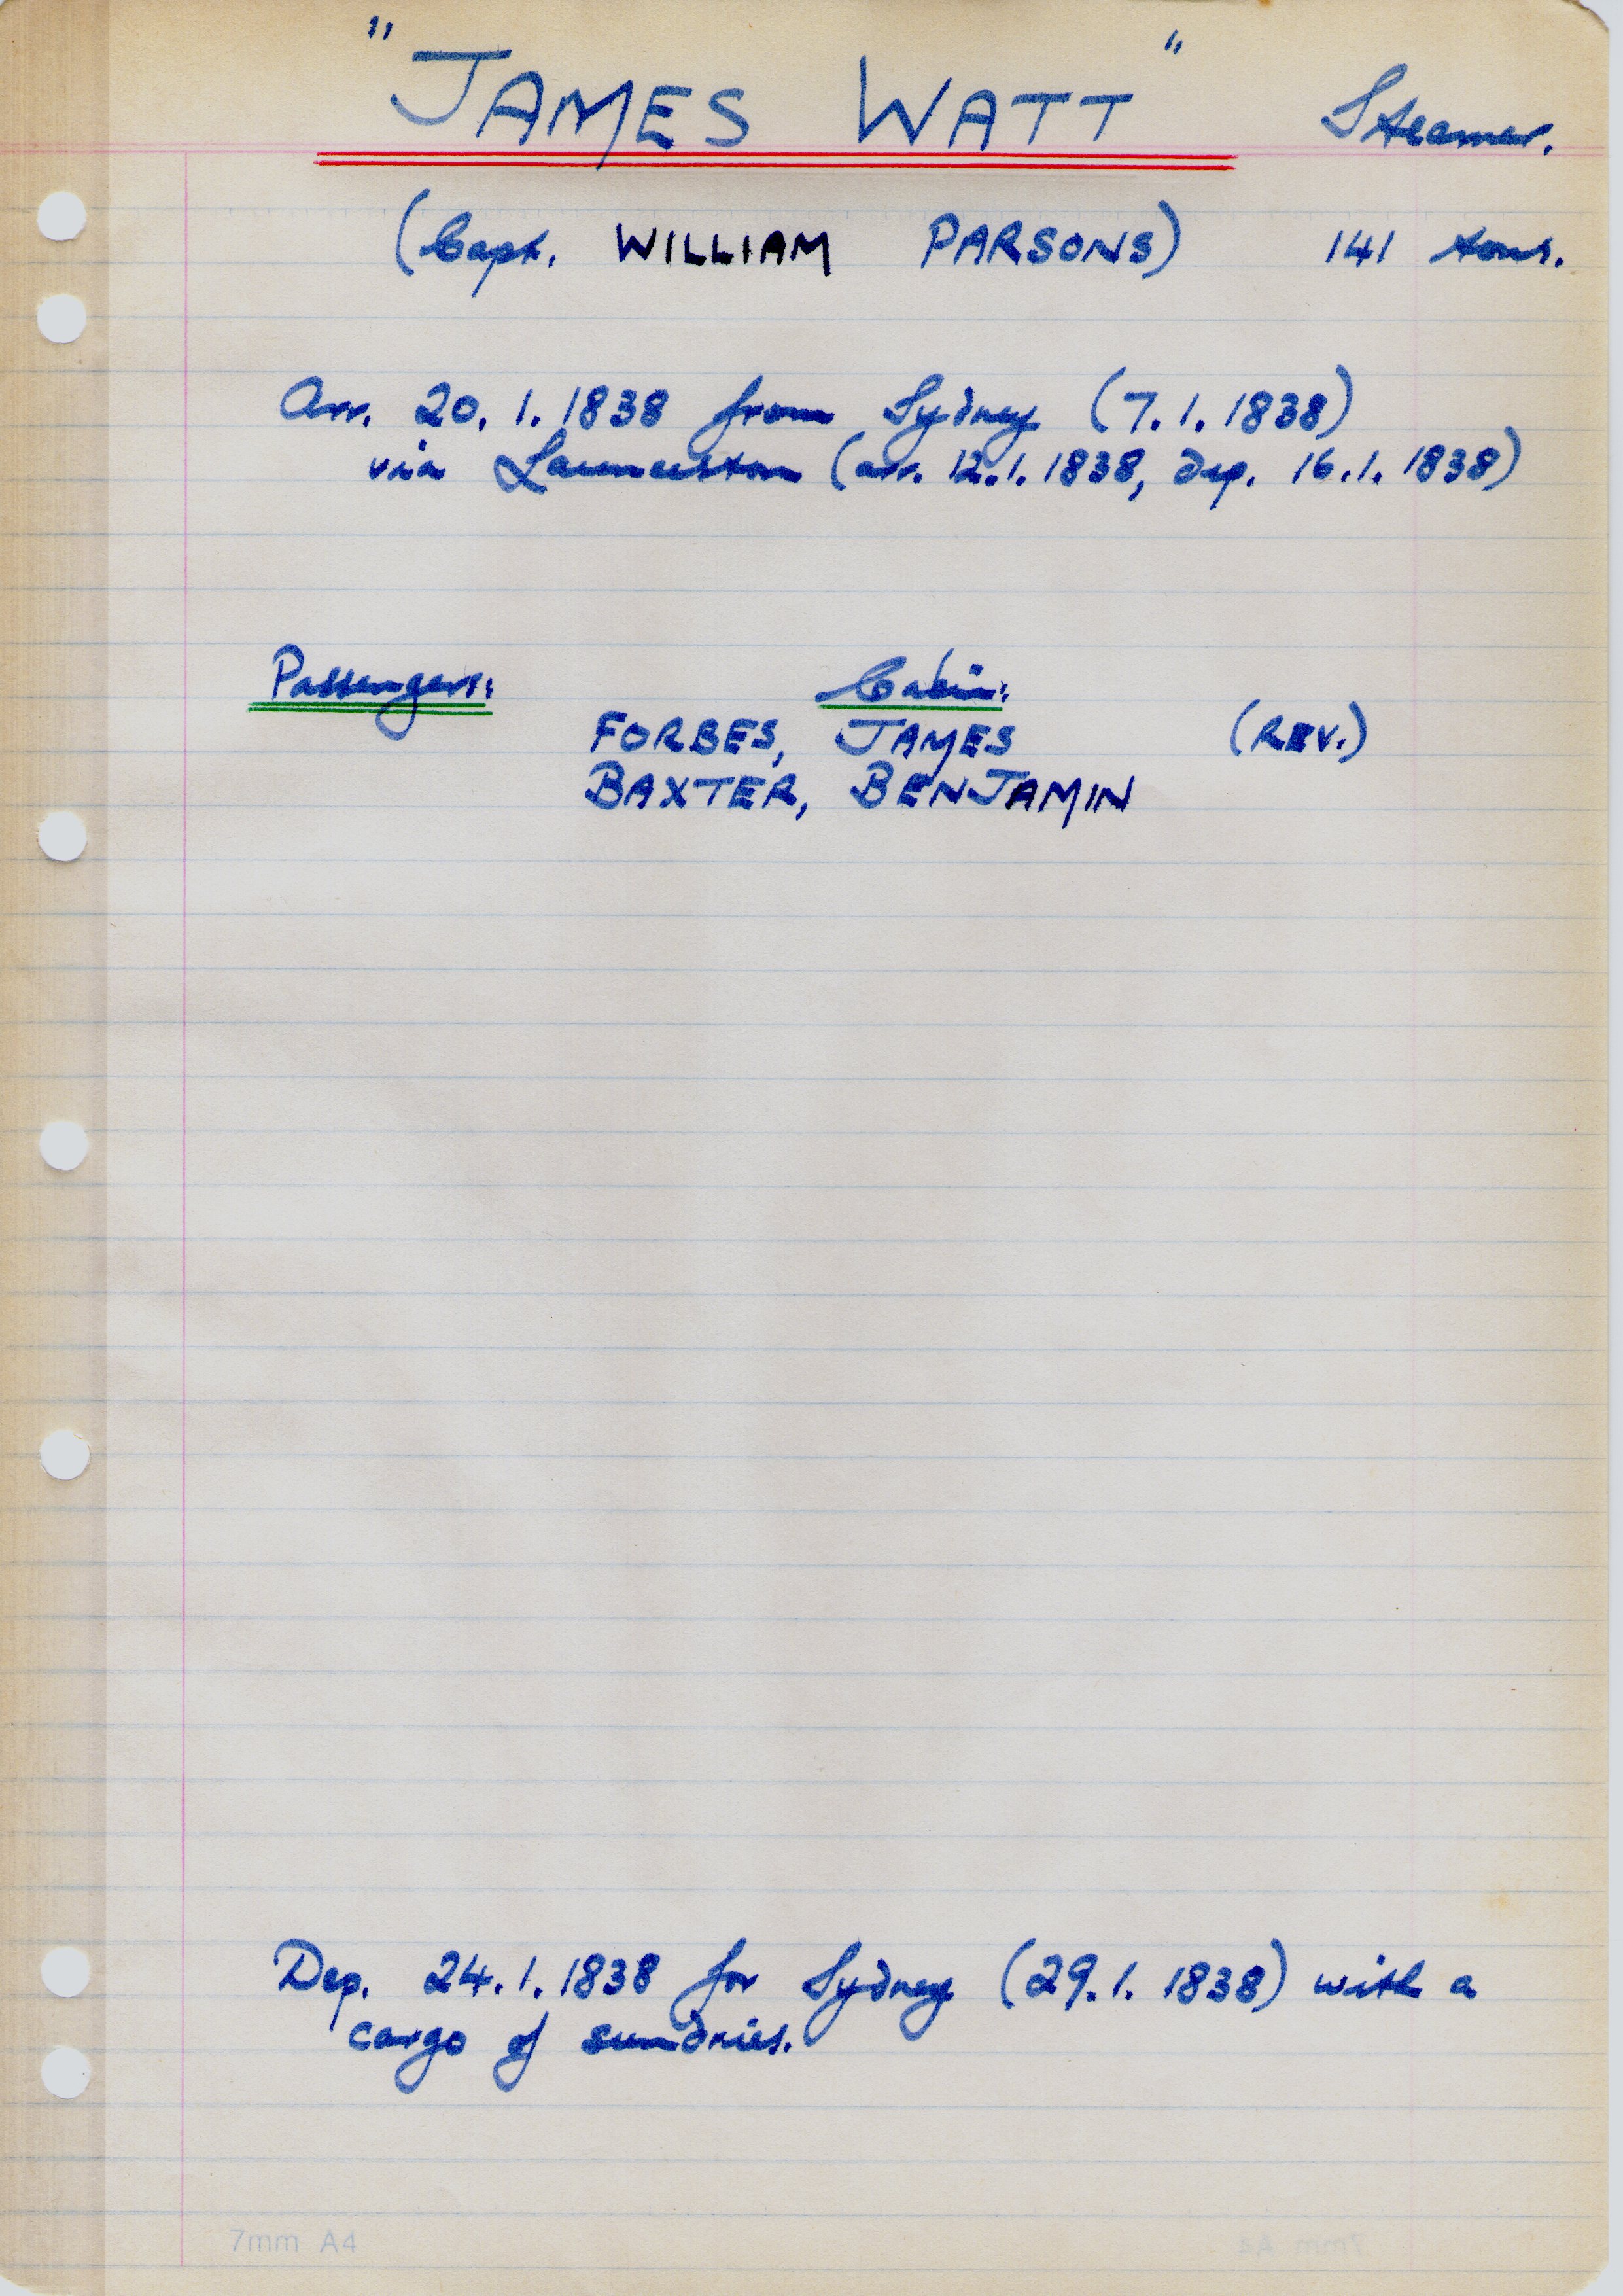 "JAMES WATT" Steamer.
(Capt. WILLIAM PARSONS) 141 tons.
Arr. 20.1.1838 from Sydney (7.1.1838)
via Launceston (arr. 12.1.1838, dep. 16.1.1838)
Passengers: Cabin:
FORBES, JAMES (REV.)
BAXTER, BENJAMIN
Dep. 24.1.1838 for Sydney (29.1.1838) with a
cargo of sundries.
7mm A4